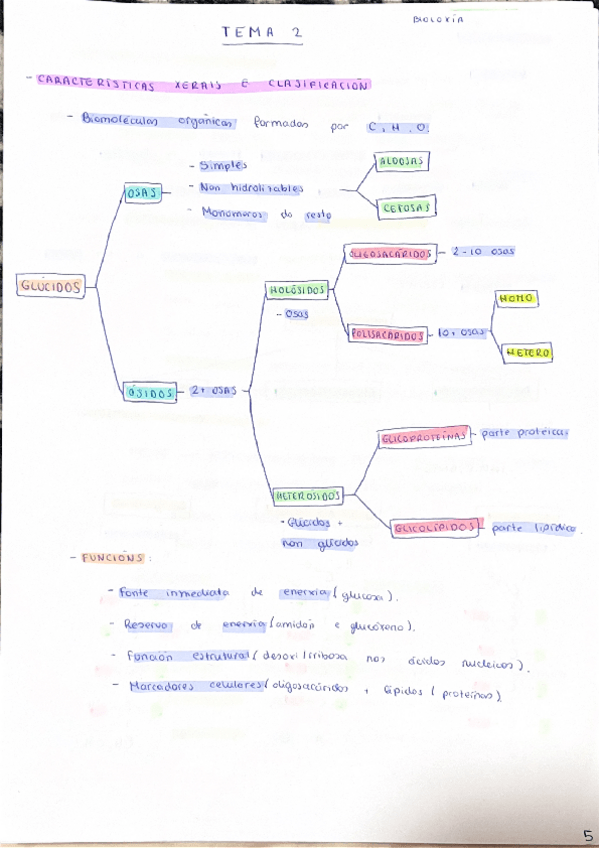 BIOLOXÍA
TEMA 2
- CARACTERÍSTICAS XERAIS E CLASIFICACIÓN
- Biomoléculas orgánicas formadas por C, H, O.
GLÚCIDOS
OSAS
- Simples
- Non hidrolizables
- Monómeros do resto
ALDOSAS
CETOSAS
ÓSIDOS - 2+ OSAS
HOLÓSIDOS
- OSAS
OLIGOSACÁRIDOS - 2-10 OSAS
POLISACÁRIDOS - 10+ OSAS
HOMO
HETERO
HETERÓSIDOS
- Glúcidos +
non glúcidos
GLICOPROTEÍNAS - parte protéica.
GLICOLÍPIDOS - parte lipídica.
- FUNCIÓNS:
- Fonte inmediata de enerxía (glucosa).
- Reserva de enerxía (amidón e glucóxeno).
- Función estrutural (desoxi/rribosa nos ácidos nucleicos).
- Marcadores celulares (oligosacáridos + lípidos / proteínas)
5